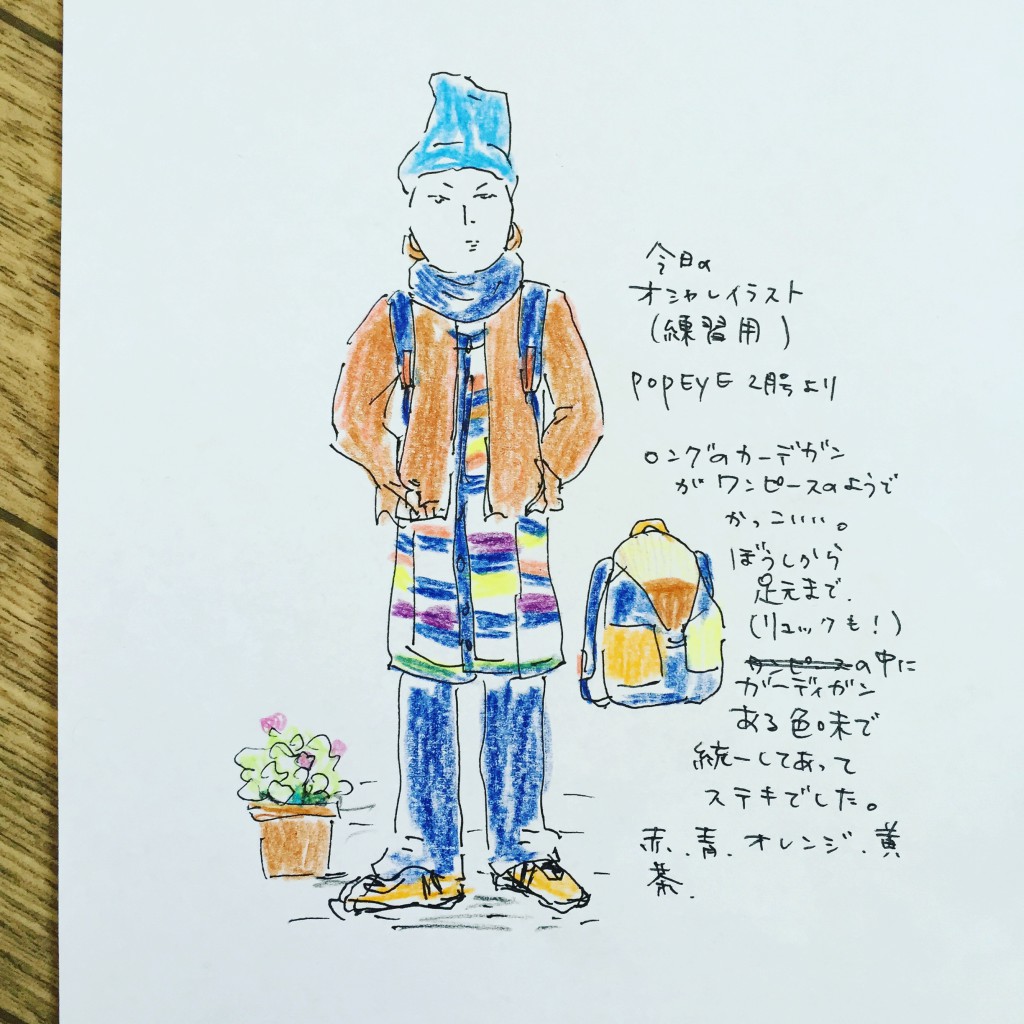 今日の
オシャレイラスト
(練習用)
POPEYE 2月号より
ロングのカーデガン
がワンピースのようで
かっこいい。
ぼうしから
足元まで、
(リュックも!)
ワンピースの中に
ガーディガン
ある色味で
統一してあって
ステキでした。
赤、青、オレンジ、黄
茶、